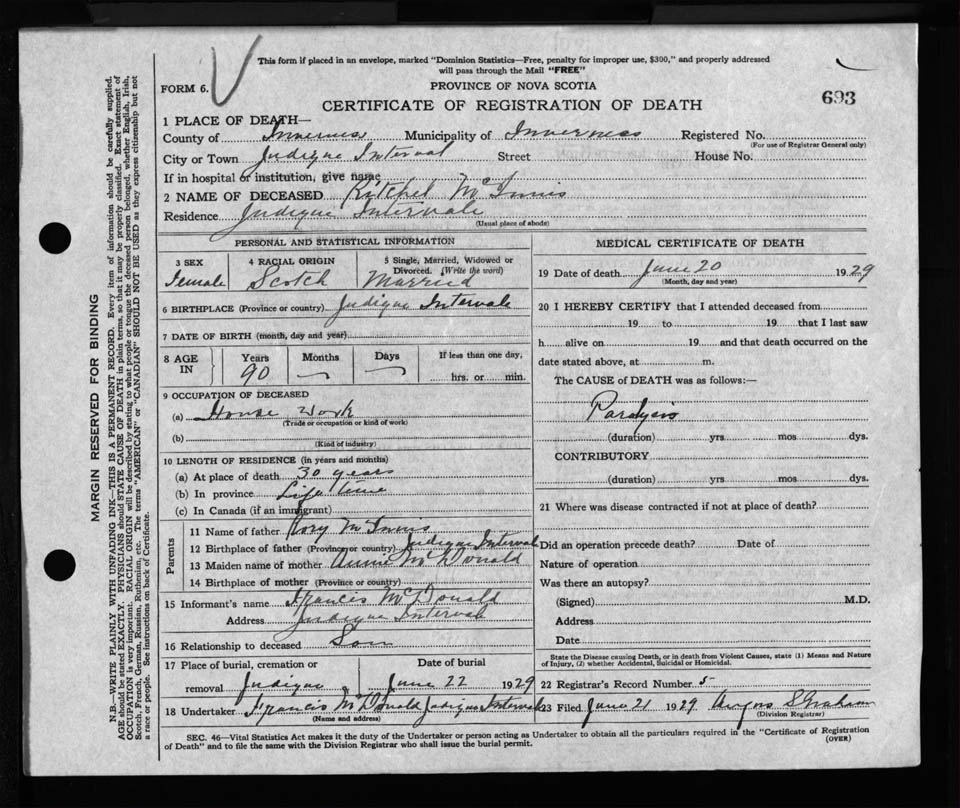 This form if placed in an envelope, marked "Dominion Statistics—Free, penalty for improper use, $300," and properly addressed
will pass through the Mail "FREE"
FORM 6.
PROVINCE OF NOVA SCOTIA
693
CERTIFICATE OF REGISTRATION OF DEATH
1 PLACE OF DEATH—
County of Inverness Municipality of Inverness Registered No.
(For use of Registrar General only)
City or Town Judique Interval Street House No.
If in hospital or institution, give name
2 NAME OF DECEASED McInnis
Residence Judique Intervale
(Usual place of abode)
PERSONAL AND STATISTICAL INFORMATION
3 SEX 4 RACIAL ORIGIN 5 Single, Married, Widowed or Divorced. (Write the word)
Female Scotch Married
6 BIRTHPLACE (Province or country) Judique Intervale
7 DATE OF BIRTH (month, day and year)
8 AGE IN Years Months Days If less than one day,
90 hrs. or min.
9 OCCUPATION OF DECEASED
(a) House work
(Trade or occupation or kind of work)
(b)
(Kind of industry)
10 LENGTH OF RESIDENCE (in years and months)
(a) At place of death 30 years
(b) In province Life time
(c) In Canada (if an immigrant)
Parents
11 Name of father Rory McInnis
12 Birthplace of father (Province or country) Judique Interval
13 Maiden name of mother Annie McDonald
14 Birthplace of mother (Province or country)
15 Informant's name Francis McDonald
Address Judique Interval
16 Relationship to deceased Son
17 Place of burial, cremation or Date of burial
removal Judique June 22 1929
18 Undertaker Francis McDonald Judique Intervale
(Name and address)
MEDICAL CERTIFICATE OF DEATH
19 Date of death June 20 1929
(Month, day and year)
20 I HEREBY CERTIFY that I attended deceased from
19 to 19 that I last saw
h alive on 19 and that death occurred on the
date stated above, at m.
The CAUSE of DEATH was as follows:—
Paralysis
(duration) yrs mos dys.
CONTRIBUTORY
(duration) yrs. mos dys.
21 Where was disease contracted if not at place of death?
Did an operation precede death? Date of
Nature of operation
Was there an autopsy?
(Signed) M.D.
Address
Date
State the Disease causing Death, or in death from Violent Causes, state (1) Means and Nature
of Injury, (2) whether Accidental, Suicidal or Homicidal.
22 Registrar's Record Number 5
23 Filed June 21 1929 Angus S Graham
(Division Registrar)
SEC. 46—Vital Statistics Act makes it the duty of the Undertaker or person acting as Undertaker to obtain all the particulars required in the "Certificate of Registration
of Death" and to file the same with the Division Registrar who shall issue the burial permit.
(OVER)
MARGIN RESERVED FOR BINDING
N.B.—WRITE PLAINLY WITH UNFADING INK—THIS IS A PERMANENT RECORD. Every item of information should be carefully supplied.
AGE should be stated EXACTLY. PHYSICIANS should STATE CAUSE OF DEATH in plain terms, so that it may be properly classified. Exact statement of
OCCUPATION is very important. RACIAL ORIGIN will be described by stating to what people or tongue the deceased person belonged, whether English, Irish,
Scotch, French, German, Russian, Ruthenian, etc. The terms "AMERICAN" or "CANADIAN" SHOULD NOT BE USED as they express citizenship but not
a race or people. See instructions on back of Certificate.